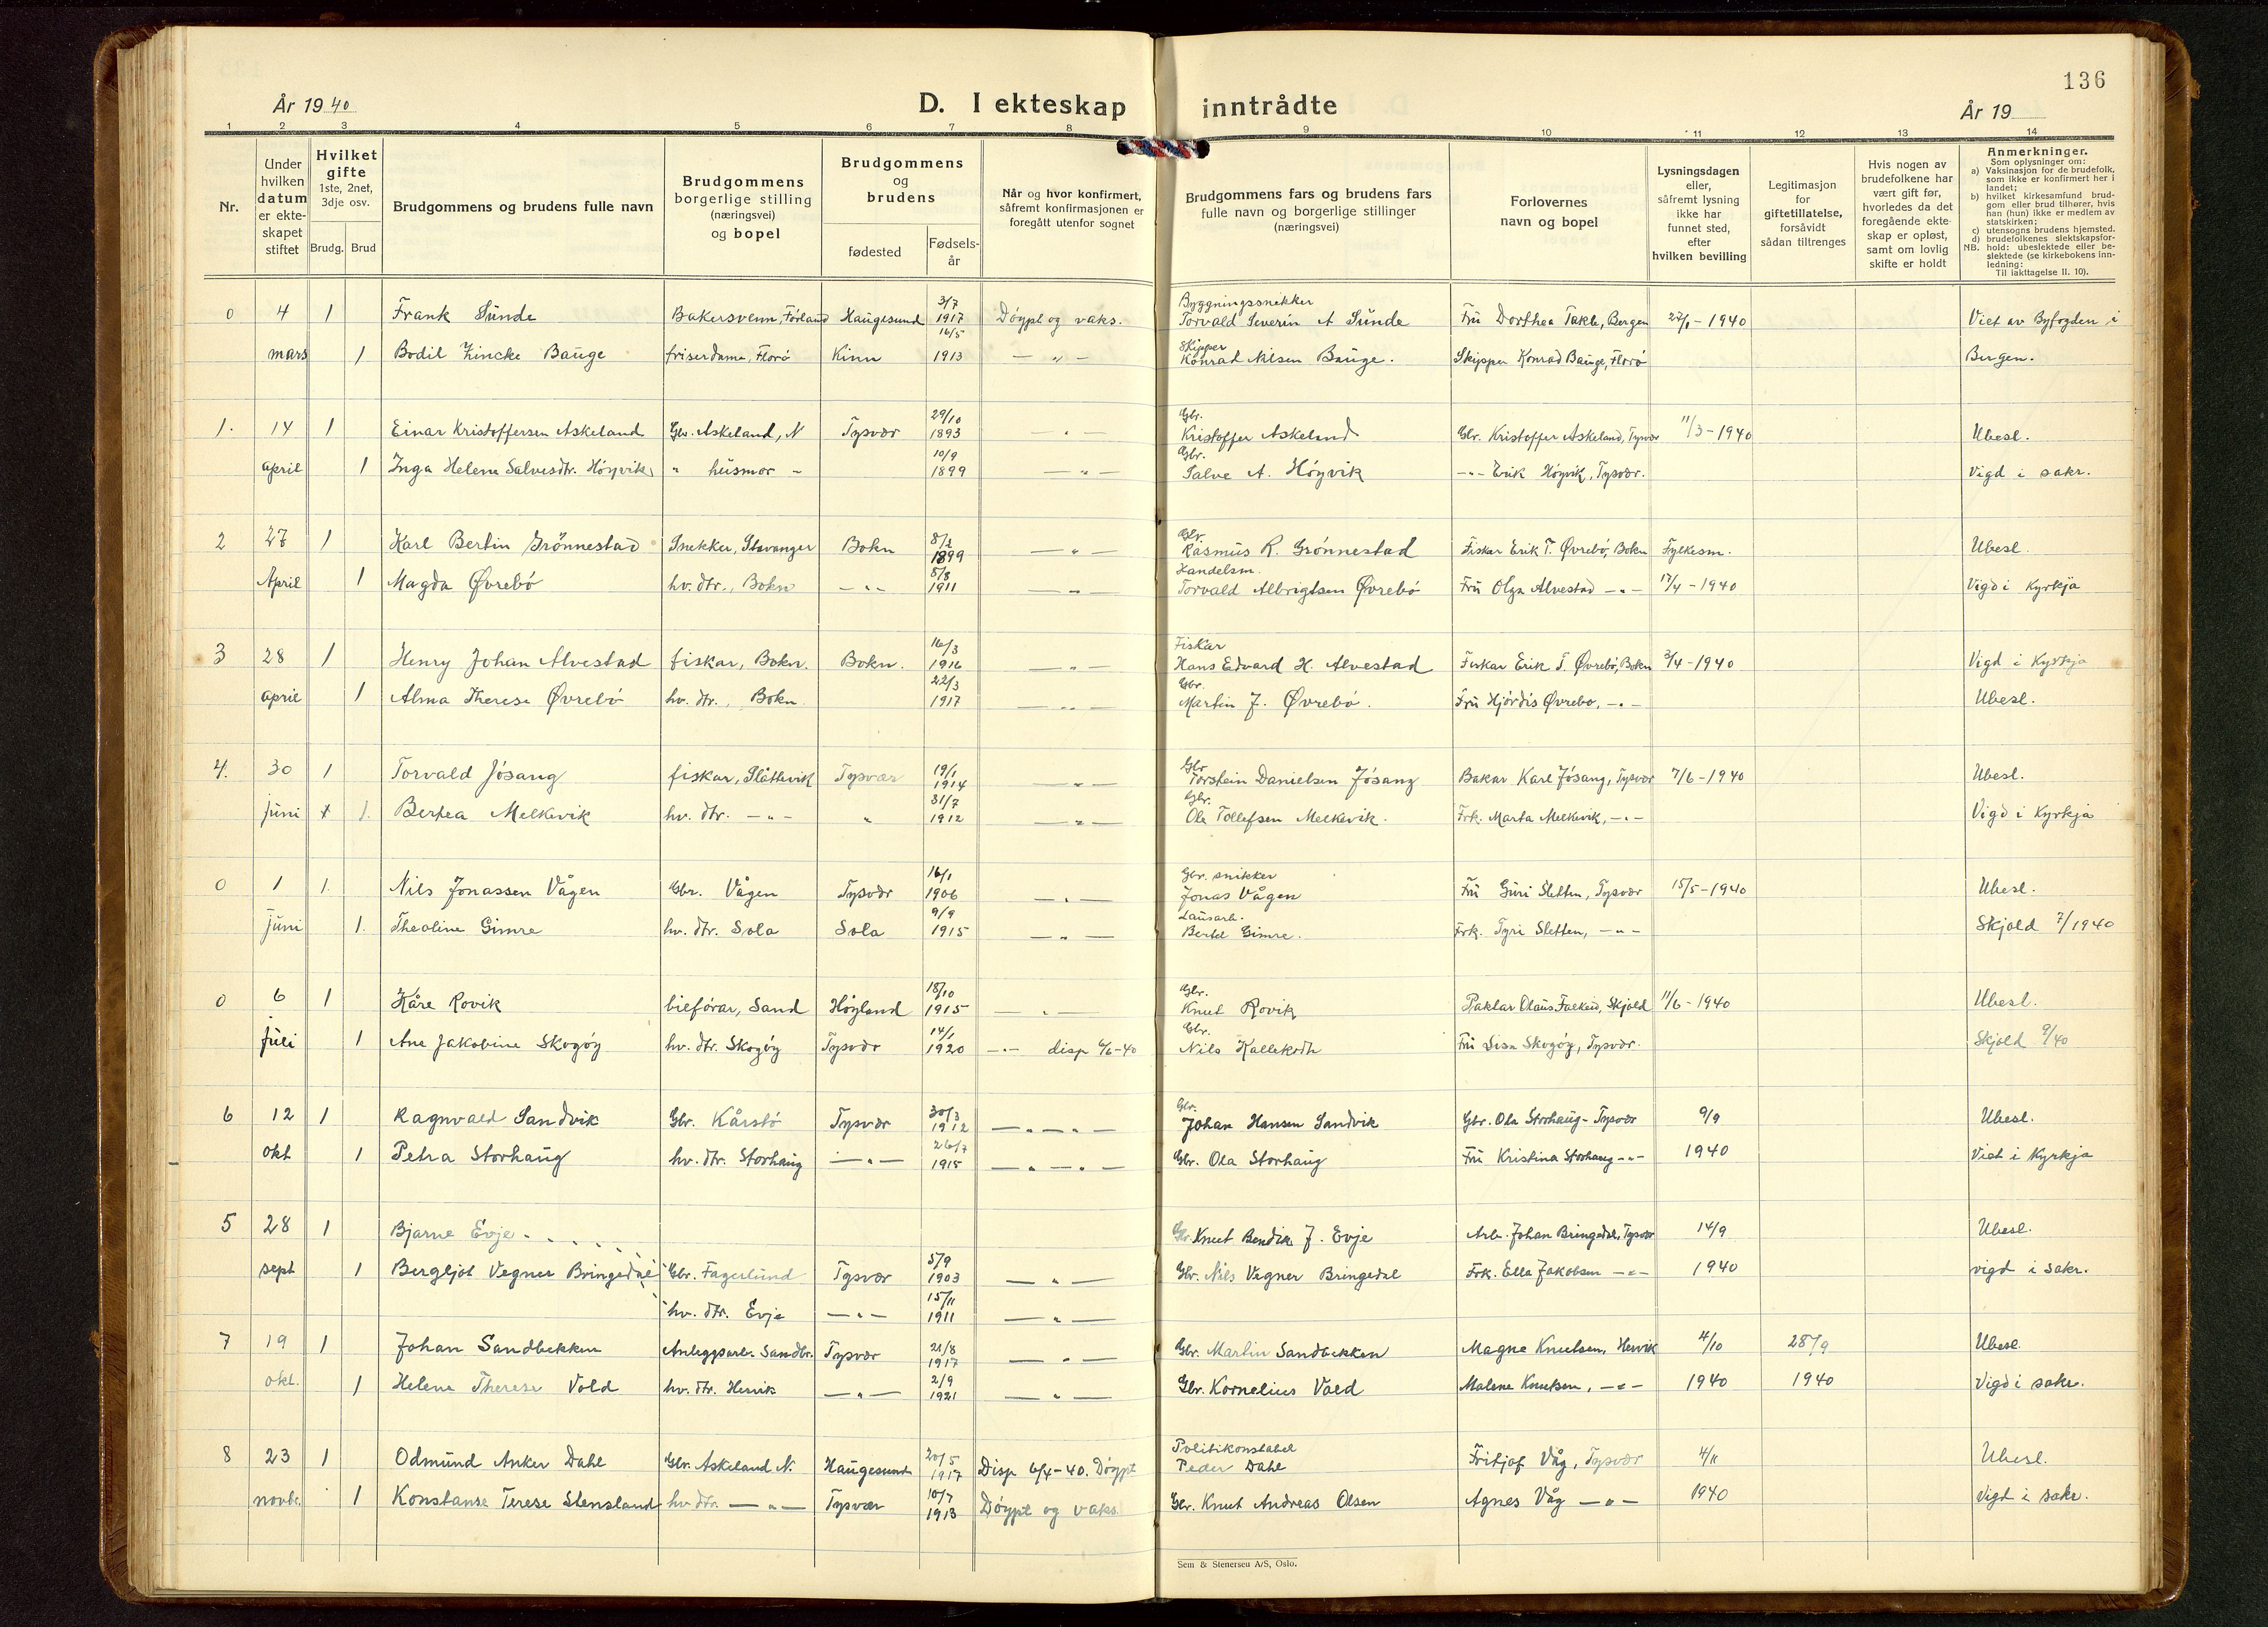 136
År 1940
D. I ekteskap inntrådte
År 19
1 2 3 4 5 6 7 8 9 10 11 12 13 14
Nr.
Under hvilken datum er ekteskapet stiftet
Hvilket gifte 1ste, 2net, 3dje osv.
Brudg. Brud
Brudgommens og brudens fulle navn
Brudgommens borgerlige stilling (næringsvei) og bopel
Brudgommens og brudens
fødested
Fødselsår
Når og hvor konfirmert, såfremt konfirmasjonen er foregått utenfor sognet
Brudgommens fars og brudens fars fulle navn og borgerlige stillinger (næringsvei)
Forlovernes navn og bopel
Lysningsdagen eller, såfremt lysning ikke har funnet sted, efter hvilken bevilling
Legitimasjon for giftetillatelse, forsåvidt sådan tiltrenges
Hvis nogen av brudefolkene har vært gift før, hvorledes da det foregående ekteskap er opløst, samt om lovlig skifte er holdt
Anmerkninger.
Som oplysninger om:
a) Vaksinasjon for de brudefolk, som ikke er konfirmert her i landet;
b) hvilket kirkesamfund brudgom eller brud tilhører, hvis han (hun) ikke er medlem av statskirken;
c) utensogns brudens hjemsted.
d) brudefolkenes slektskapsforhold: ubeslektede eller beslektede (se kirkebokens innledning:
NB.
Til iakttagelse II. 10).
0 4 1 Frank Sunde Bakersvenn, Førland Haugesund 3/7 1917 Döypt og vaks. Byggningssnekker Torvald Severin A Sunde Fru Dorthea Takle, Bergen 27/1-1940 Viet av Byfogden i
mars 1 Bodil Zincke Bauge friserdame, Florö Kinn 16/5 1913 — " — Skipper Konrad Nilsen Bauge. Skipper Konrad Bauge, Florö Bergen.
1. 14 1 Einar Kristoffersen Askeland Gbr. Askeland, N Tysvær 29/10 1893 — " — Gbr. Kristoffer Askeland Gbr. Kristoffer Askeland, Tysvær 11/3-1940 Ubesl.
april 1 Inga Helena Salvesdtr. Höyvik " husmor - 10/9 1899 — " — Gbr. Salve A. Höyvik -"- Erik Höyvik, Tysvær. Vigd i sakr.
2 27 1 Karl Bertin Grönnestad Snekker, Stavanger Bokn 8/2 1899 — " — Gbr. Rasmus R. Grönnestad Fiskar Erik T. Øvrebö, Bokn Fylkesm. Ubesl.
April 1 Magda Øvrebö hv. dtr., Bokn -"- 8/8 1911 — " — Handelsm. Torvald Albrigtsen Øvrebö Fru Olga Alvestad -"- 17/4-1940 Vigd i Kyrkja
3 28 1 Henry Johan Alvestad fiskar, Bokn. Bokn. 16/3 1916 — " — Fiskar Hans Edvard H. Alvestad Fiskar Erik T. Øvrebö, Bokn 3/4-1940 Vigd i Kyrkja
april 1 Alma Therese Øvrebö hv. dtr., Bokn. 22/3 1917 — " — Gbr. Martin J. Øvrebö. Fru Hjördis Øvrebo, -"- Ubesl.
4. 30 1 Torvald Jösang fiskar, Slåttevik Tysvær 19/1 1914 — " — Gbr Torstein Danielsen Jösang Bakar Karl Jösang, Tysvær 7/6-1940 Ubesl.
juni 1. Bertea Melkevik hv. dtr. -"- " 31/7 1912 — " — Gbr. Ola Tollefsen Melkevik. Frk. Marta Melkevik, -"- Vigd i Kyrkja
0 1 1. Nils Jonassen Vågen Gbr. Vågen Tysvær 16/1 1906 — " — Gbr. snikker Jonas Vågen Fru Guri Sletten, Tysvær 15/5-1940 Ubesl.
juni 1. Thealine Gimre hv. dtr. Sola Sola 9/9 1915 — " — Lausarb. Bertel Gimre. Frk. Tyri Sletten, -"- Skjold 7/1940
0 6 1 Kåre Rovik bilförar, Sand Höyland 18/10 1915 — " — Gbr. Knut Rovik Paktar Olaus Falkeid, Skjold 11/6-1940 Ubesl.
juli 1 Ane Jakobine Skogöy hv. dtr. Skogöy Tysvær 14/1 1920 -"- disp 6/6-40 Gbr. Nils Kallekodt Fru Lisa Skogöy, Tysvær. Skjold 9/40
6 12 1 Ragnvald Sandvik Gbr. Kårstö Tysvær 30/3 1912 — " — " — Gbr. Johan Hansen Sandvik Gbr. Ola Storhaug - Tysvær 9/9 Ubesl.
okt 1 Petra Storhaug hv. dtr. Storhaug — " — 26/7 1915 — " — " — Gbr. Ola Storhaug Fru Kristina Storhaug -"- 1940 Viet i Kyrkja
5 28 1 Bjarne Evje Gbr. Knut Bendik J. Evje Arb. Johan Bringedal, Tysvær 14/9 Ubesl.
sept 1 Bergljot Vegner Bringedal Gbr. Fagerlund Tysvær 5/9 1903 — " — Gbr. Nils Vegner Bringedal Frk. Ella Jakobsen -"- 1940 vigd i sakr.
hv. dtr. Evje -"- 15/11 1911 — " —
7 19 1 Johan Sandbekken Anleggsarb. Sandbr. Tysvær 21/8 1917 — " — Gbr. Martin Sandbekken Magne Knutsen, Hervik 4/10 28/9 Ubesl.
okt. 1 Helene Therese Vold hv. dtr. Hervik — " — 2/9 1921 — " — Gbr. Kornelius Vold Malene Knutsen, -"- 1940 1940 Vigd i sakr.
8 23 1 Odmund Anker Dahl Gbr. Askeland N. Haugesund 20/5 1917 Disp 6/4-40. Döypt Politikonstabel Peder Dahl Fritjof Våg, Tysvær 4/11 Ubesl.
novbr. 1 Konstanse Terese Stensland hv. dtr. — " — Tysvær 10/7 1913 Döypt og vaks. Gbr. Knut Andreas Olsen Agnes Våg — " — 1940 Vigd i sakr.
Sem & Stenersen A/S, Oslo.